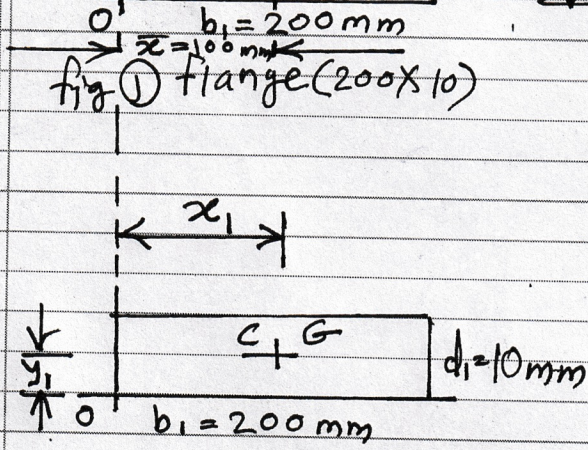 0 b₁ = 200 mm
x̄ = 100 mm
fig ① flange (200X10)
x₁
C G
y₁
d₁=10mm
0 b₁ = 200 mm